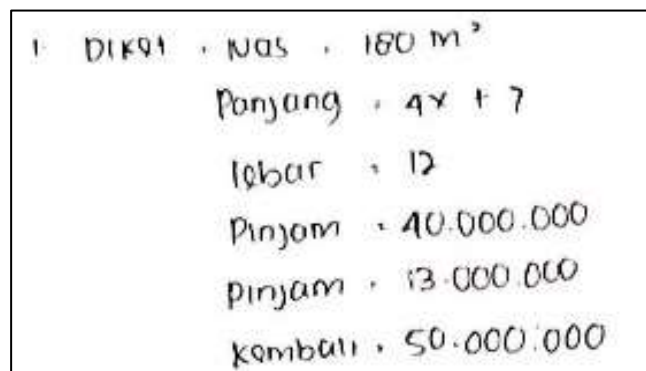 1. DIKET : Luas : 180 m²
Panjang : 4x + 7
lebar : 12
Pinjam : 40.000.000
pinjam : 13.000.000
kembali : 50.000.000